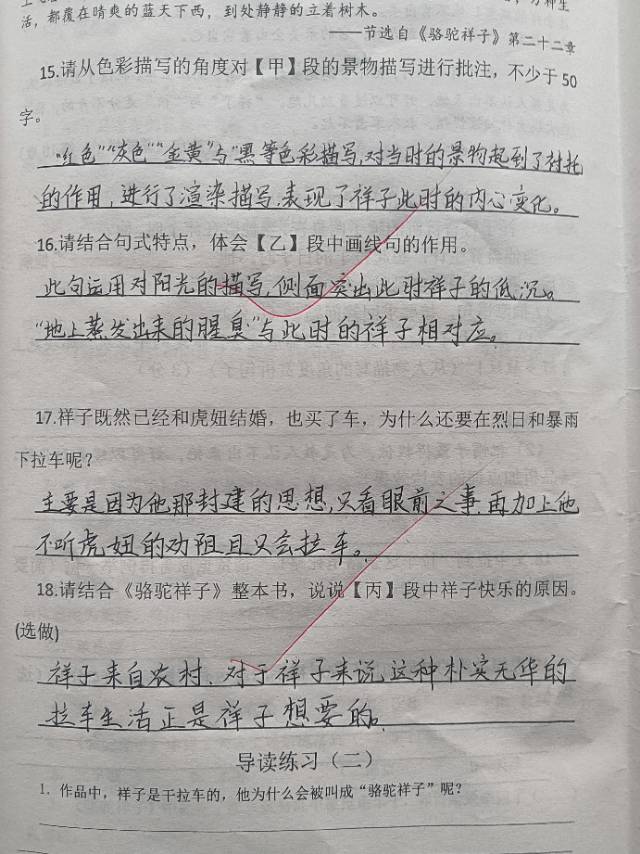 活，都覆在晴爽的蓝天下西，到处静静的立着树木。
——节选自《骆驼祥子》第二十二章
15.请从色彩描写的角度对【甲】段的景物描写进行批注，不少于50
字。
“红色”“灰色”“金黄”与“黑等色彩描写,对当时的景物起到了衬托
的作用,进行了渲染描写.表现了祥子此时的内心变化。
16.请结合句式特点，体会【乙】段中画线句的作用。
此句运用对阳光的描写,侧面突出此时祥子的低沉。
“地上蒸发出来的腥臭”与此时的祥子相对应。
17.祥子既然已经和虎妞结婚，也买了车，为什么还要在烈日和暴雨
下拉车呢？
主要是因为他那封建的思想,只看眼前之事.再加上他
不听虎妞的劝阻且只会拉车。
18.请结合《骆驼祥子》整本书，说说【丙】段中祥子快乐的原因。
(选做)
祥子来自农村.对于祥子来说,这种朴实无华的
拉车生活正是祥子想要的。
导读练习（二）
1. 作品中，祥子是干拉车的，他为什么会被叫成“骆驼祥子”呢？